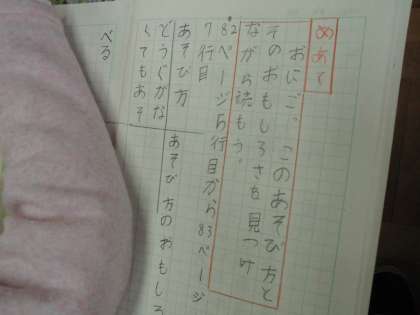 めあて
おにご。このあそび方と
そのおもしろさを見つけ
ながら読もう。
82ページ5行目から83ページ
7行目
あそび方
あそび方のおもしろ
どうぐがな
くてもあそ
べる